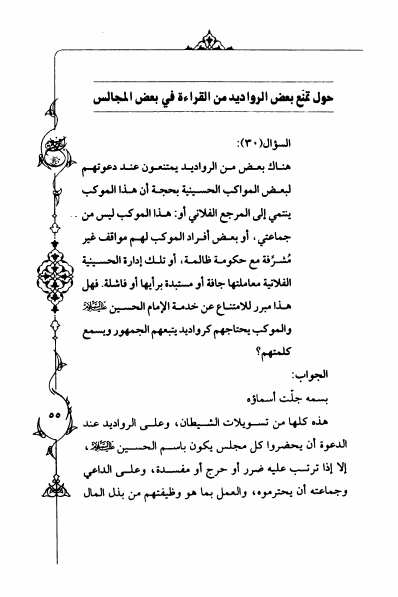 حول تمنّع بعض الرواديد من القراءة في بعض المجالس
السؤال(٣٠):
هناك بعض من الرواديد يمتنعون عند دعوتهم
لبعض المواكب الحسينية بحجة أن هذا الموكب
ينتمي إلى المرجع الفلاني أو: هذا الموكب ليس من
جماعتي، أو بعض أفراد الموكب لهم مواقف غير
مُشرِّفة مع حكومة ظالمة، أو تلك إدارة الحسينية
الفلانية معاملتها جافة أو مستبدة برأيها أو فاشلة. فهل
هذا مبرر للامتناع عن خدمة الإمام الحسين
والموكب يحتاجهم كرواديد يتبعهم الجمهور ويسمع
كلمتهم؟
الجواب:
بسمه جلّت أسماؤه
هذه كلها من تسويلات الشيطان، وعلى الرواديد عند
الدعوة أن يحضروا كل مجلس يكون باسم الحسين ،
إلا إذا ترتب عليه ضرر أو حرج أو مفسدة، وعلى الداعي
وجماعته أن يحترموه، والعمل بما هو وظيفتهم من بذل المال
٥٥